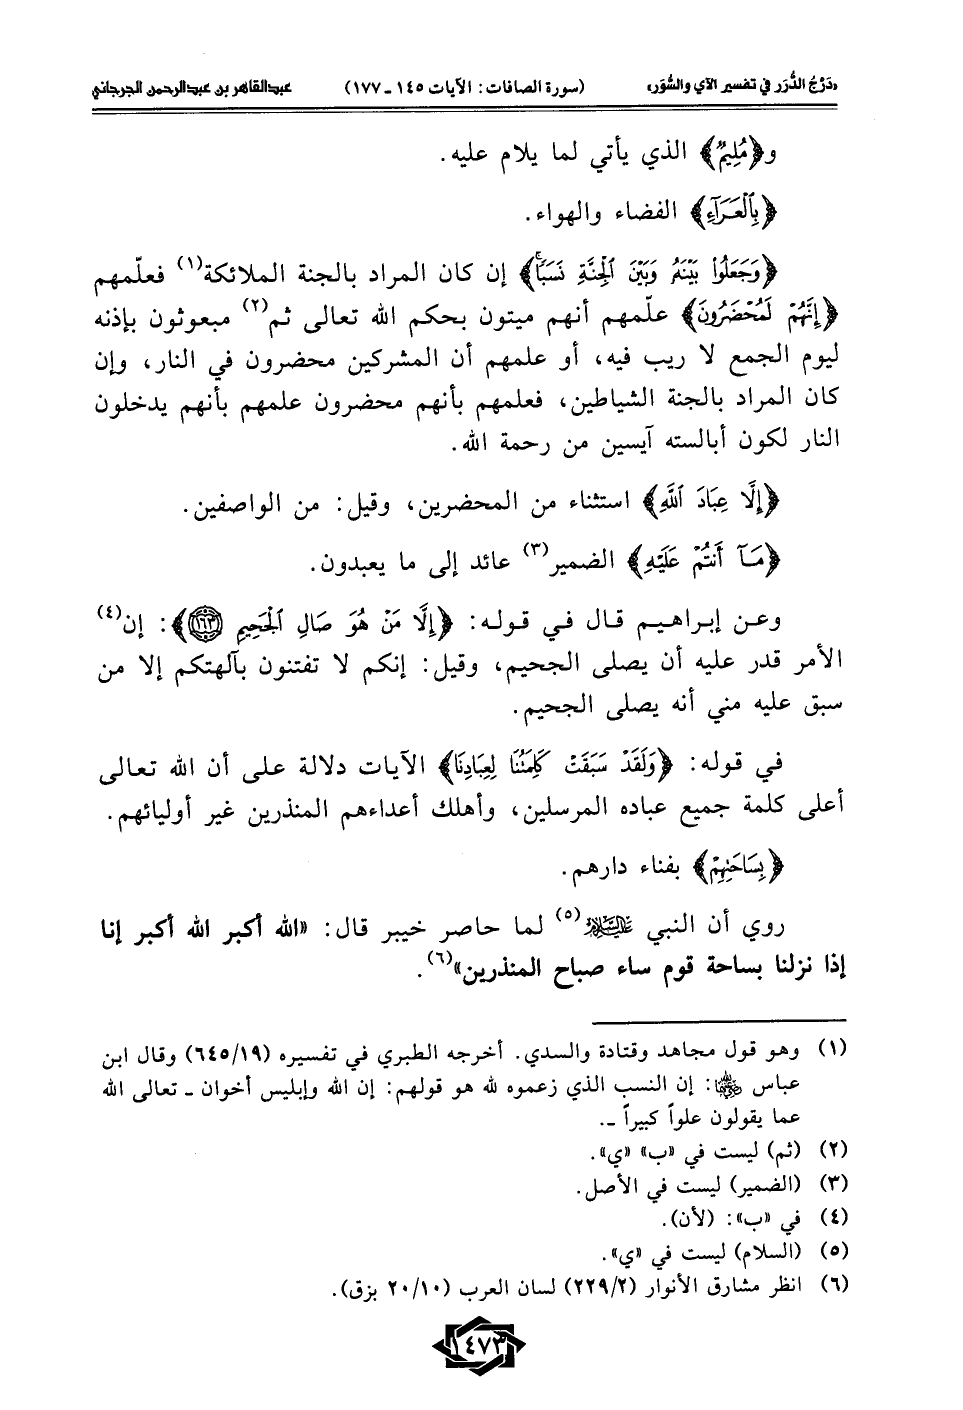 «دَرْجُ الدُّرَر في تفسير الآي والسُّوَر» (سورة الصافات: الآيات ١٤٥ - ١٧٧) عبدالقاهر بن عبدالرحمن الجرجاني
و﴿مُلِيمٌ﴾ الذي يأتي لما يلام عليه.
﴿بِٱلْعَرَآءِ﴾ الفضاء والهواء.
﴿وَجَعَلُوا۟ بَيْنَهُۥ وَبَيْنَ ٱلْجِنَّةِ نَسَبًا﴾ إن كان المراد بالجنة الملائكة(١) فعلّمهم
﴿إِنَّهُمْ لَمُحْضَرُونَ﴾ علّمهم أنهم ميتون بحكم الله تعالى ثم(٢) مبعوثون بإذنه
ليوم الجمع لا ريب فيه، أو علمهم أن المشركين محضرون في النار، وإن
كان المراد بالجنة الشياطين، فعلمهم بأنهم محضرون علمهم بأنهم يدخلون
النار لكون أبالسته آيسين من رحمة الله.
﴿إِلَّا عِبَادَ ٱللَّهِ﴾ استثناء من المحضرين، وقيل: من الواصفين.
﴿مَآ أَنتُمْ عَلَيْهِ﴾ الضمير(٣) عائد إلى ما يعبدون.
وعن إبراهيم قال في قوله: ﴿إِلَّا مَنْ هُوَ صَالِ ٱلْجَحِيمِ ١٦٣﴾: إن(٤)
الأمر قدر عليه أن يصلى الجحيم، وقيل: إنكم لا تفتنون بآلهتكم إلا من
سبق عليه مني أنه يصلى الجحيم.
في قوله: ﴿وَلَقَدْ سَبَقَتْ كَلِمَتُنَا لِعِبَادِنَا﴾ الآيات دلالة على أن الله تعالى
أعلى كلمة جميع عباده المرسلين، وأهلك أعداءهم المنذرين غير أوليائهم.
﴿بِسَاحَتِهِمْ﴾ بفناء دارهم.
روي أن النبي عليه السلام(٥) لما حاصر خيبر قال: «الله أكبر الله أكبر إنا
إذا نزلنا بساحة قوم ساء صباح المنذرين»(٦).
(١) وهو قول مجاهد وقتادة والسدي. أخرجه الطبري في تفسيره (٦٤٥/١٩) وقال ابن
عباس رضي الله عنهما: إن النسب الذي زعموه لله هو قولهم: إن الله وإبليس أخوان - تعالى الله
عما يقولون علواً كبيراً -.
(٢) (ثم) ليست في «ب» «ي».
(٣) (الضمير) ليست في الأصل.
(٤) في «ب»: (لأن).
(٥) (السلام) ليست في «ي».
(٦) انظر مشارق الأنوار (٢٢٩/٢) لسان العرب (٢٠/١٠ بزق).
١٤٧٣